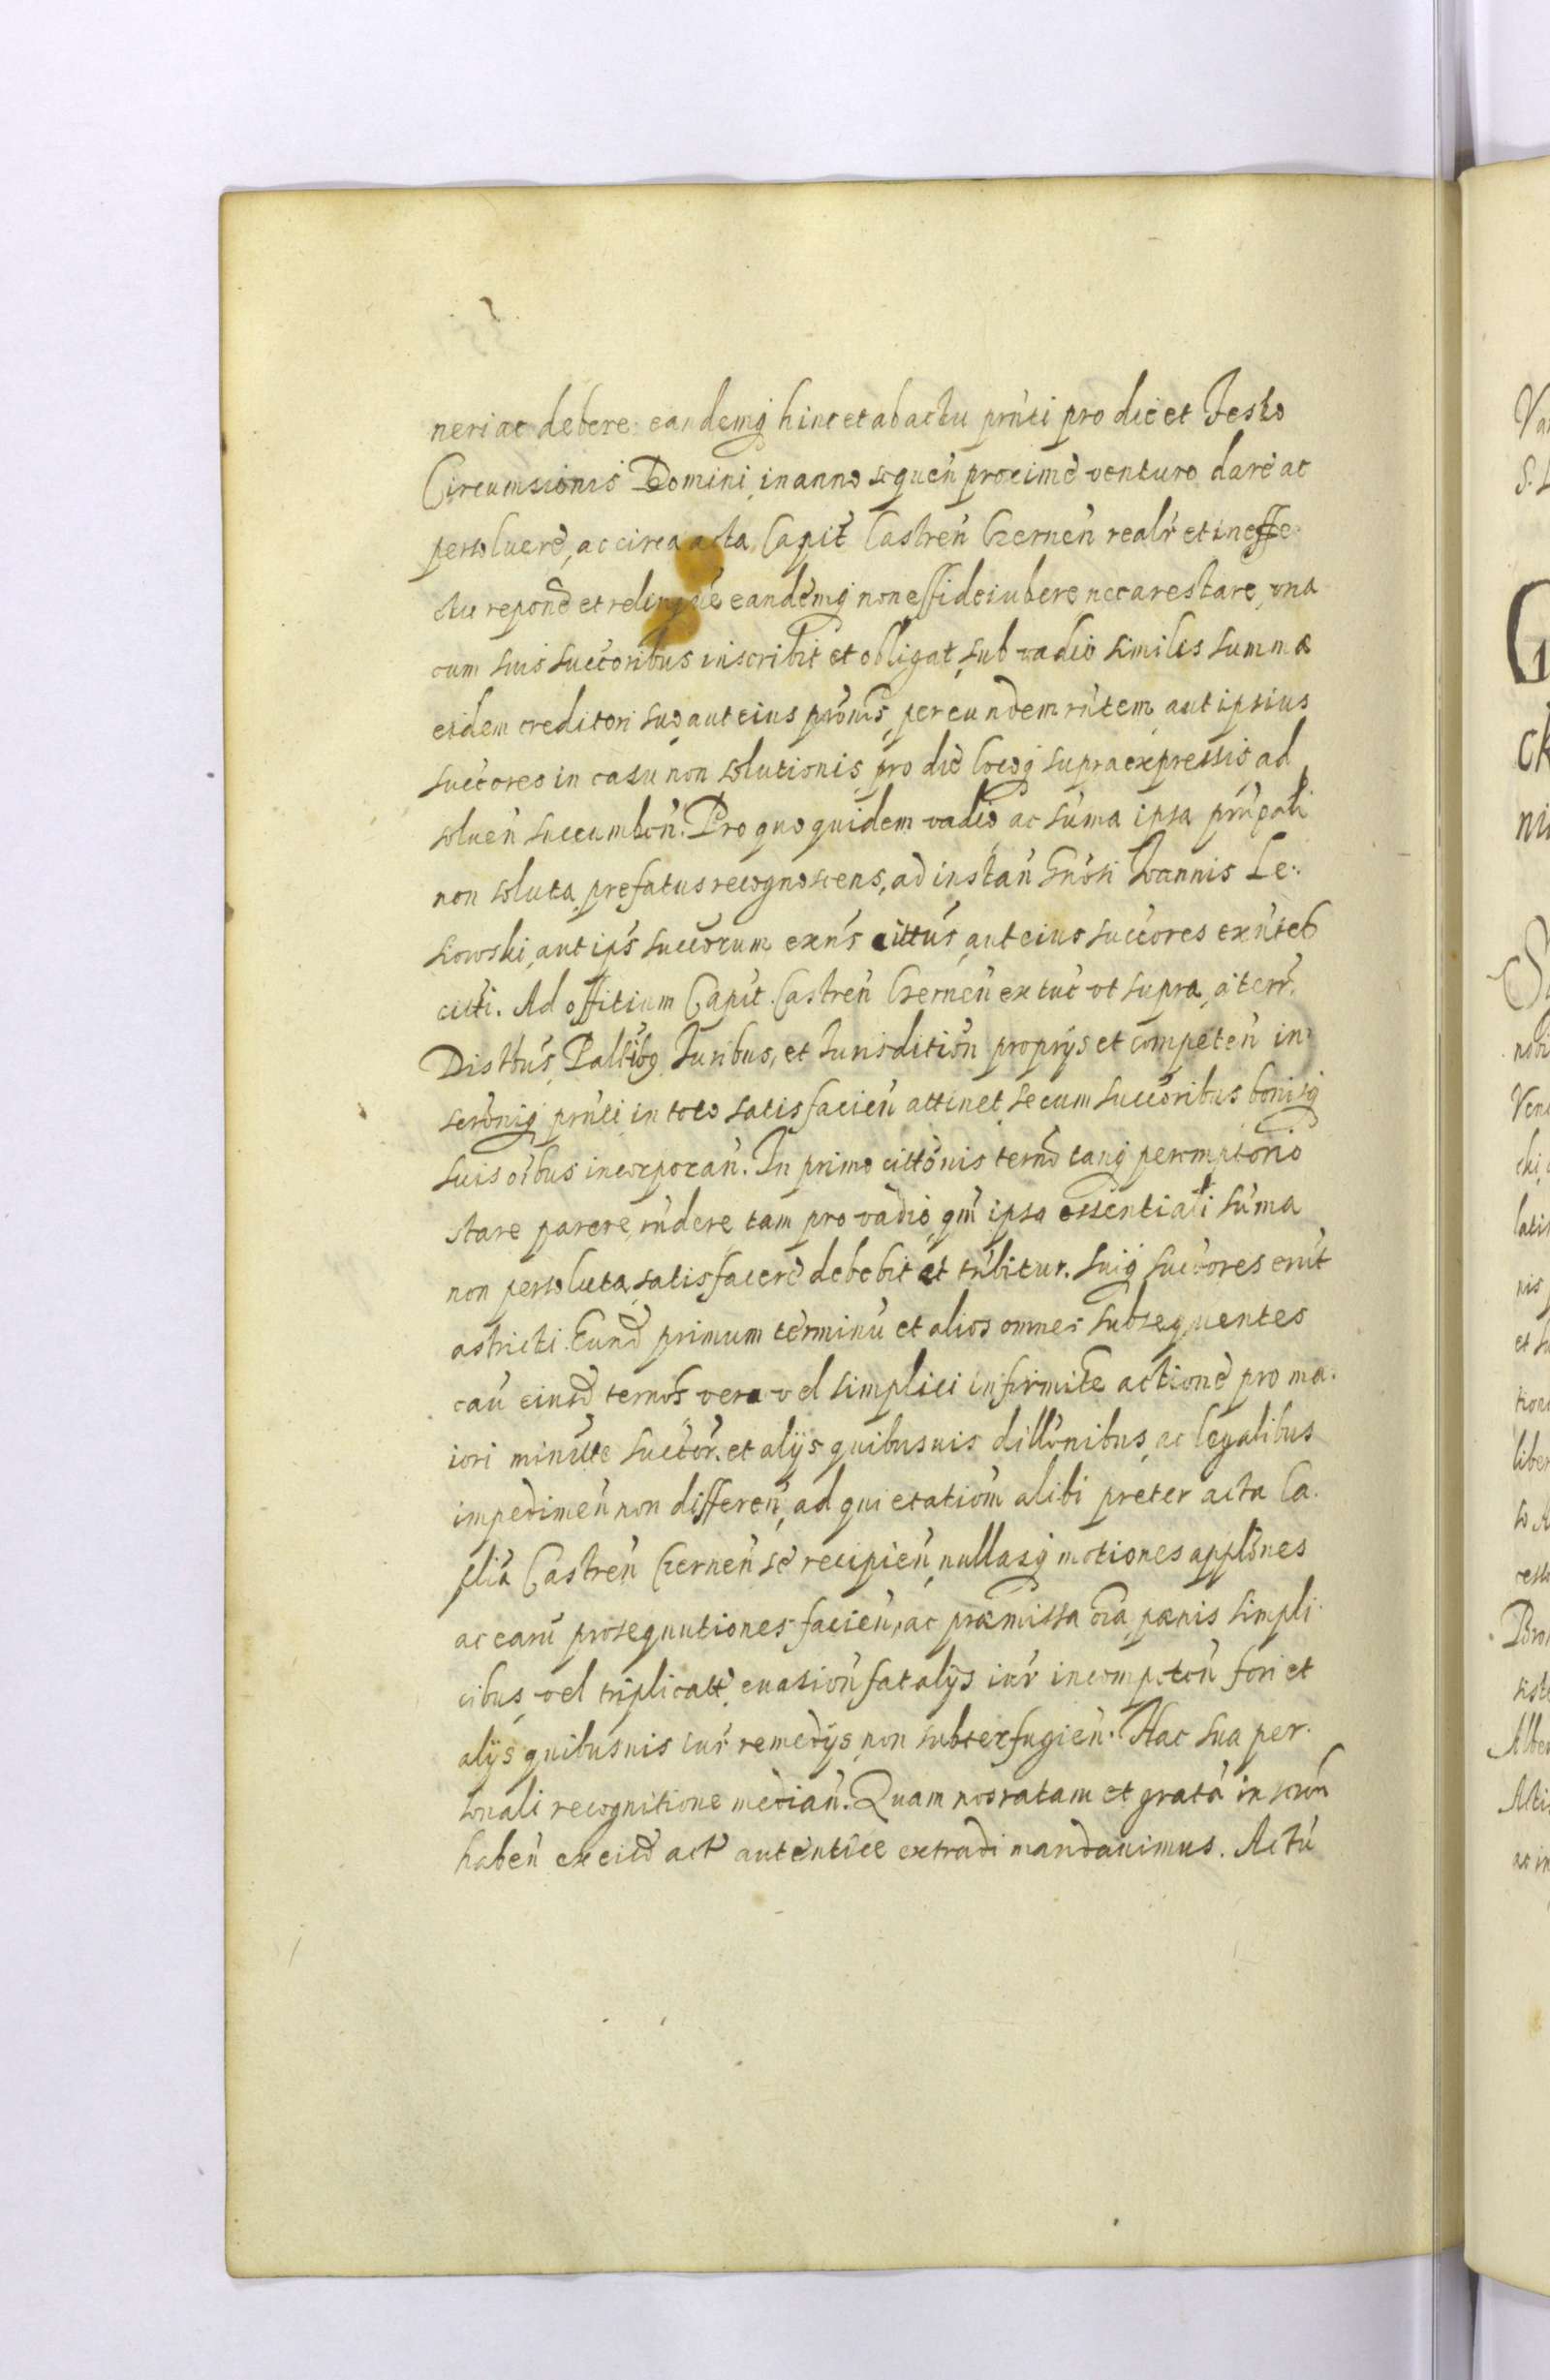 neri ac debere eandemq hinc et ab actu pnti pro die et Festo
Circumsionis Domini in anno sequen proxime venturo dare ac
persoluere, ac circa acta Capit Castren Czernen realr et in effe
ctu repond et relinque eandemq non effideiubere nec arestare, vna
cum suis succoribus inscribit et obligat, sub vadio similis summæ
eidem creditori suo aut eius pronis, per eundem rntem aut ipsius
succores in casu non solutionis pro die locoq supraexpressis ad
soluen succumben. Pro quo quidem vadio ac suma ipsa prnpali
non soluta prefatus recognoscens, ad instan Gnosi Ioannis Le
skowski, aut ips succorum exns cittus, aut eius succores exnteb
citti. Ad officium Capit. Castren Czernen ex tuc vt supra, a terr.
Distbus, Pallibq Iuribus, et Iurisdition proprijs et competen in
scroniq pnti in toto satisfacien attinet se cum succoribus bonisq
suis oibus incorporan. In primo cittonis termo tanq peremptorio
stare parere, rndere tam pro vadio, qm ipsa essentiali suma
non persoluta, satisfacere debebit et tnbitur. Suiq succores erut
astricti. Eund primum terminu et alios omnes subsequentes
cau eiusd termos vera vel simplici infirmite actione pro ma
iori minute succor. et alijs quibusuis dillonibus, ac legalibus
impedimen non differen, ad quietationm alibi preter acta Ca
plia Castren Czernen se recipien, nullasq motiones applones
ac earu prosequutiones facien, ac præmissa oia, pænis simpli
cibus, vel triplicatt, euasion fatalijs iur incompeten fori et
alijs quibusuis iur remedijs non subterfugien. Hac sua per
sonali recognitione median. Quam nos ratam et grata in
haben ex eisd act autentice extradi mandauimus. Actu